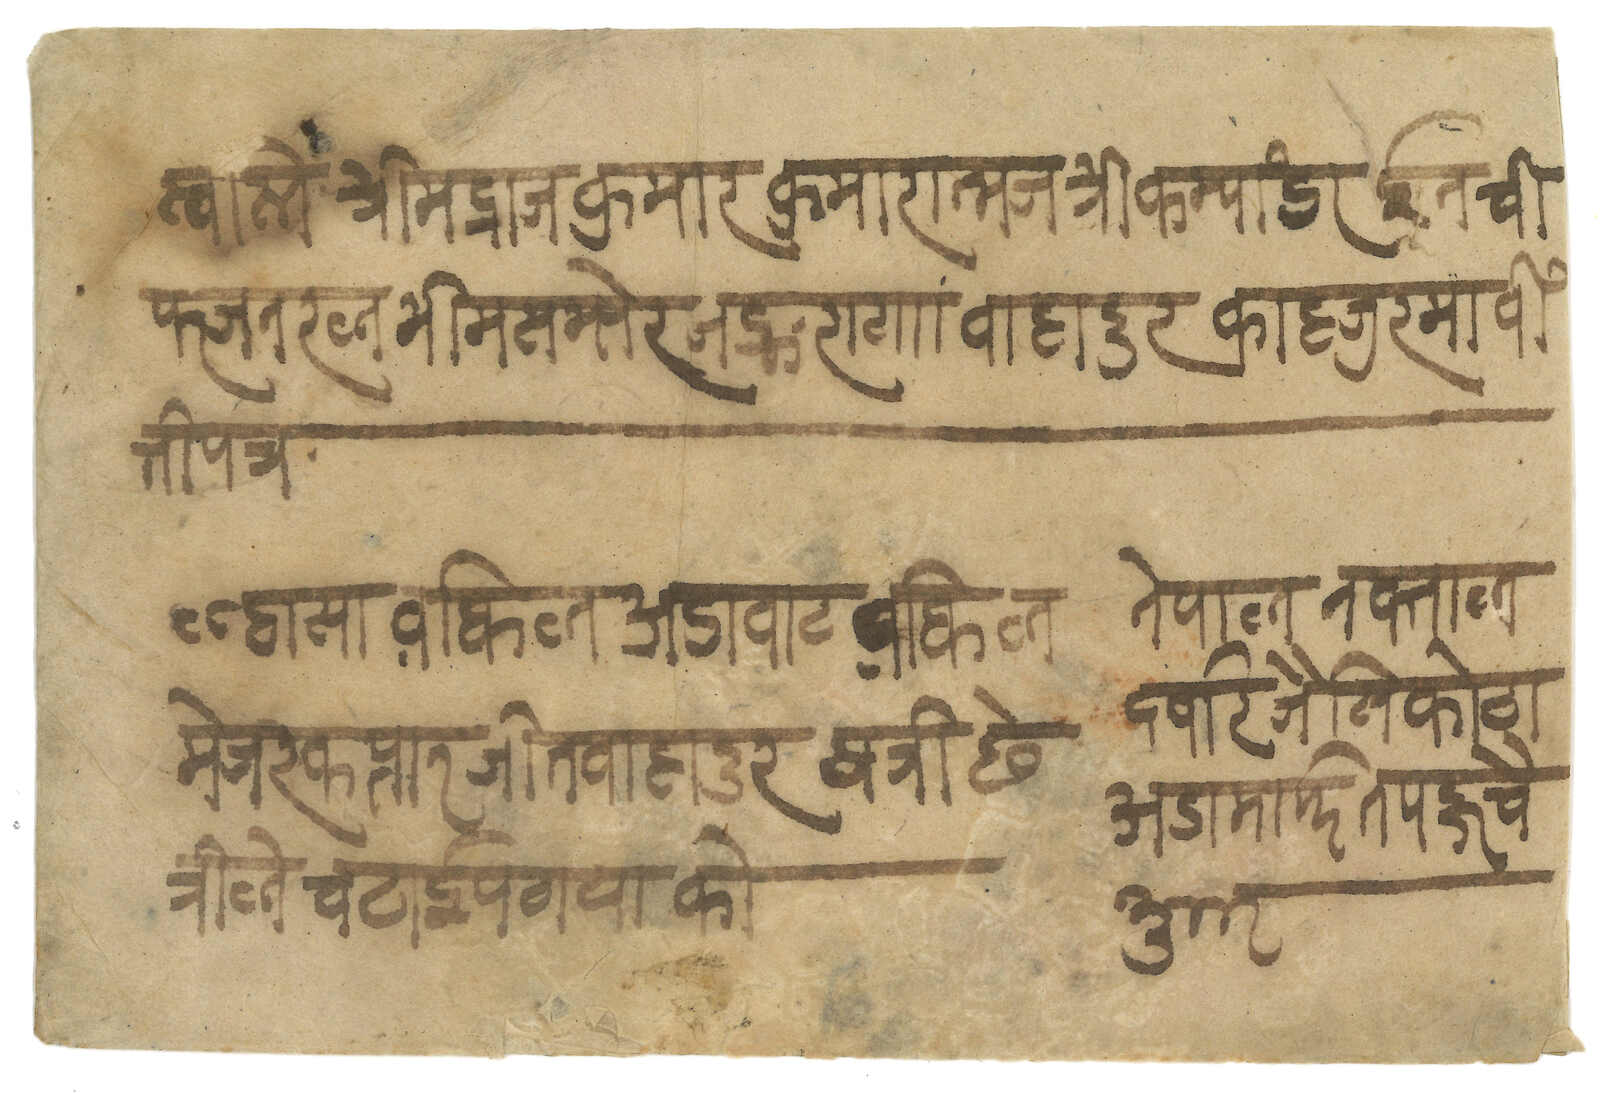 स्वस्ति श्रीमद्राजकुमार कुमारात्मज श्री कम्यांडर ईन ची
फ जनरल भीम सम्सेर जङ्ग राणा वाहादुर का हजुरमा वीं
ती पत्र
ल्हासा वकिल अडावाट वकिल
मेजर कप्तान जीत वाहादुर षत्री छे
त्रीले चढाई पठाया को
नेपाल नक्साल
दर्वार जैसि कोठा
अडामा पुग्ने